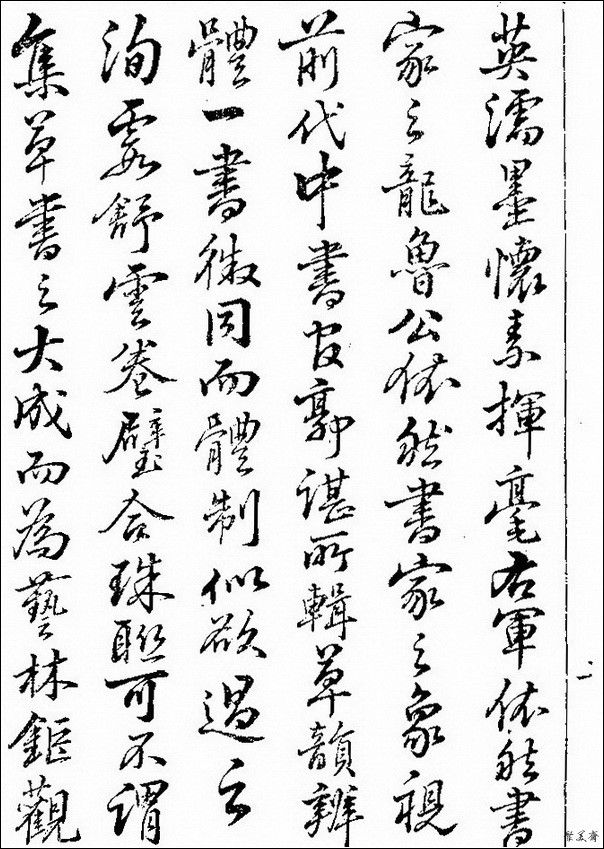 英濡墨懷素揮毫右軍依然書
家之龍魯公依然書家之象視
前代中書官郭諶所輯草韻辨
體一書微同而體制似欲過之
洵霞舒雲卷璧合珠聯可不謂
集草書之大成而為藝林鉅觀